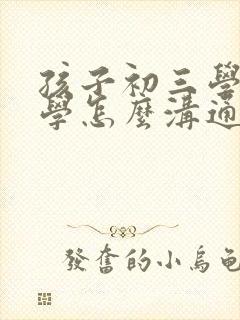 孩子初三學
學怎麼溝通
發奮的小烏龜